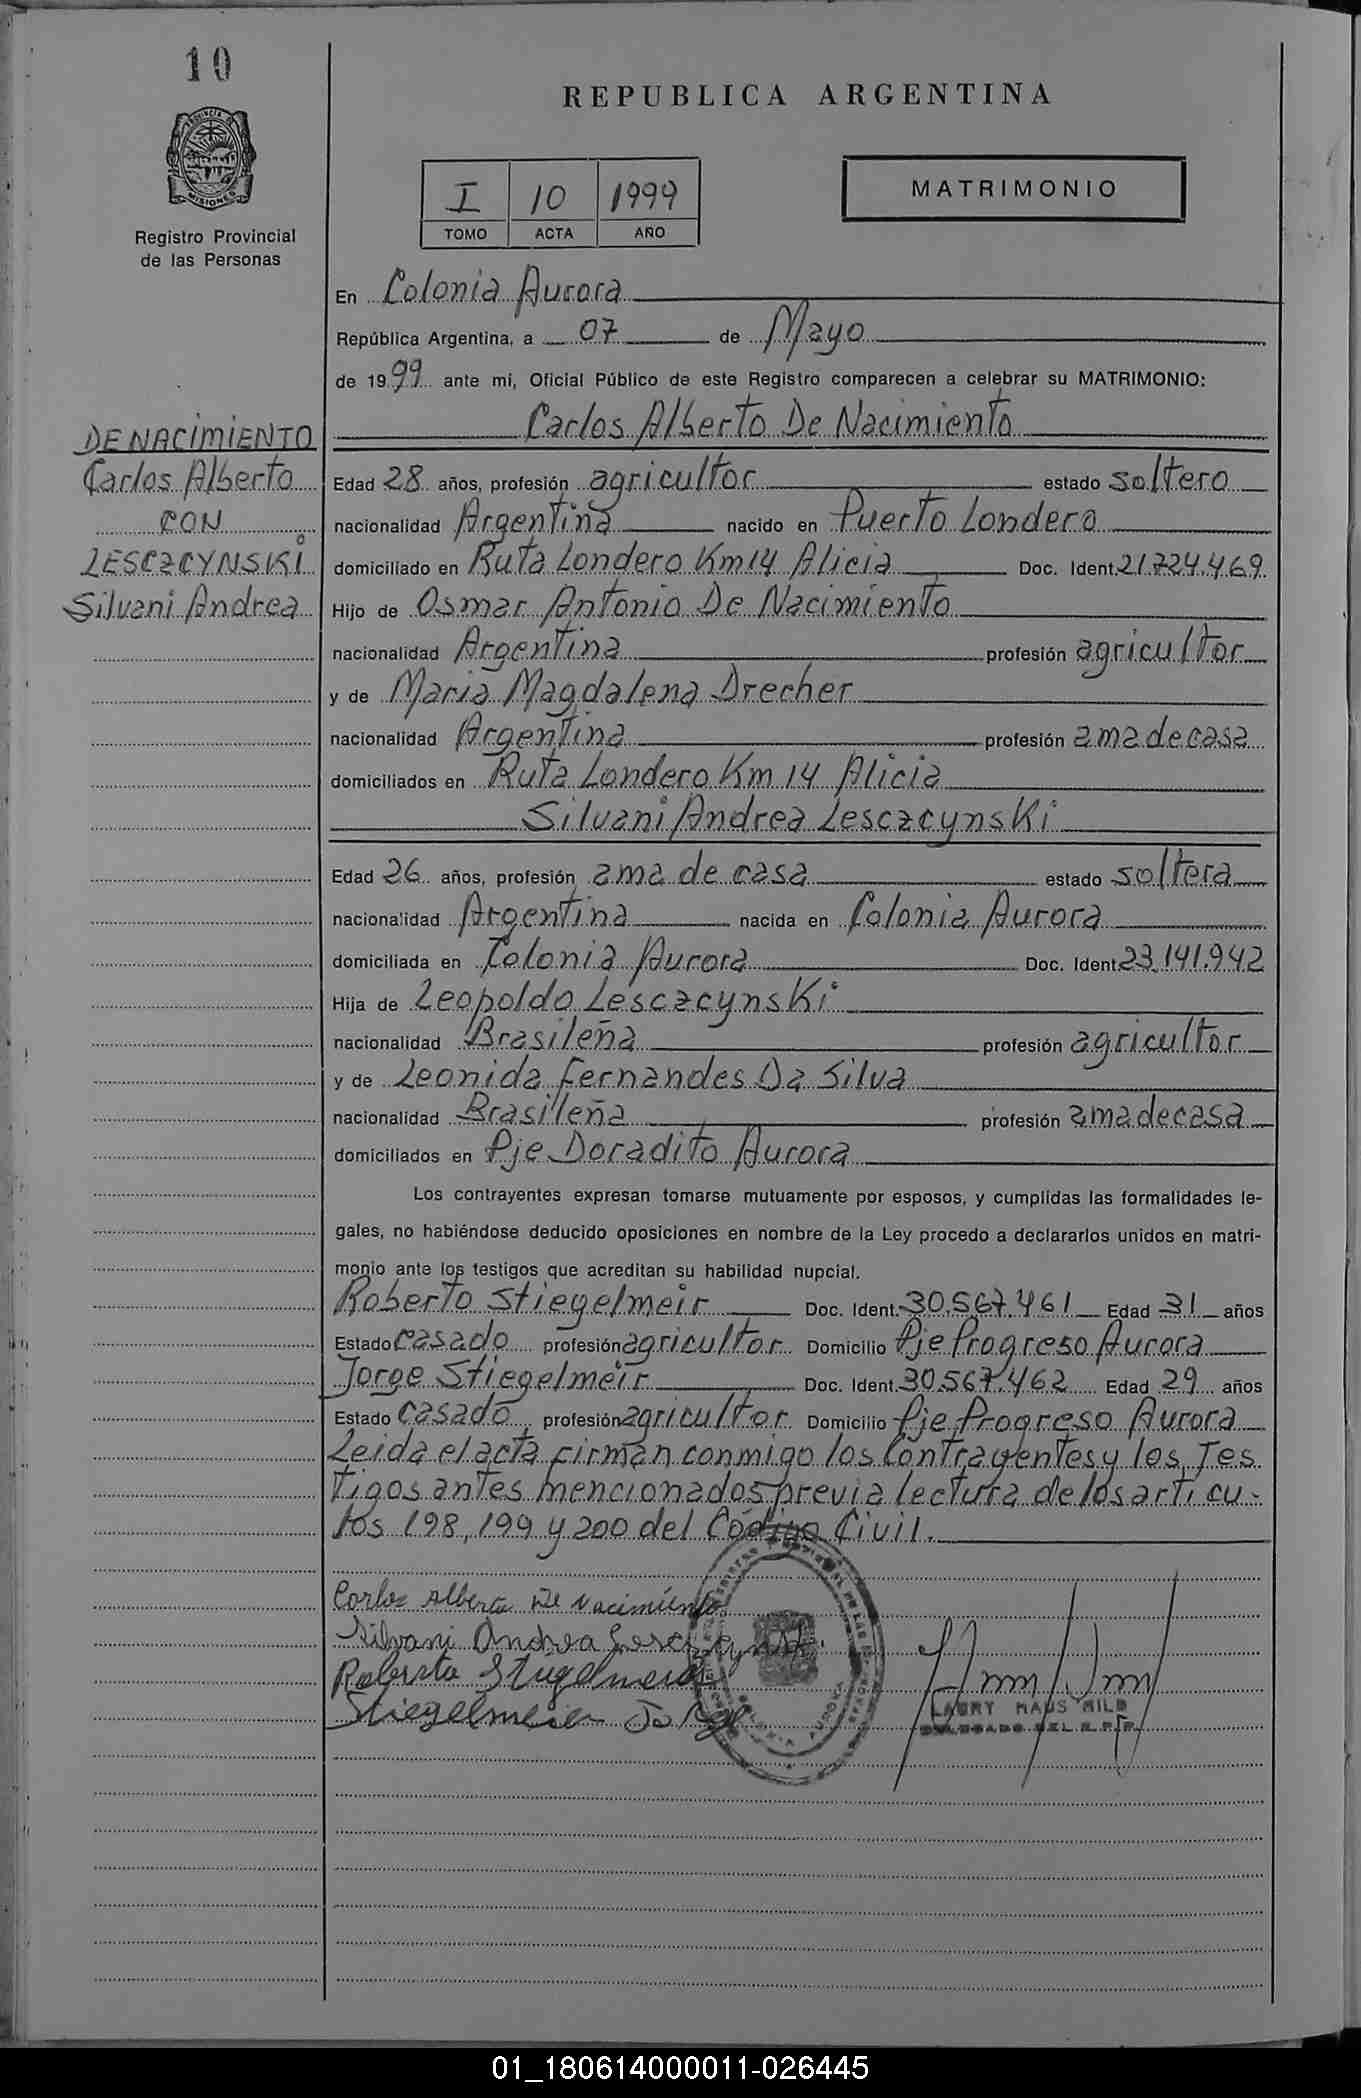 10
PROVINCIA DE
MISIONES
Registro Provincial
de las Personas
REPUBLICA ARGENTINA
I 10 1999
TOMO ACTA AÑO
MATRIMONIO
En Colonia Aurora
República Argentina, a 07 de Mayo
de 1999 ante mi, Oficial Público de este Registro comparecen a celebrar su MATRIMONIO:
DE NACIMIENTO
Carlos Alberto
CON
LESCZCYNSKI
Silvani Andrea
Carlos Alberto De Nacimiento
Edad 28 años, profesión agricultor estado soltero
nacionalidad Argentina nacido en Puerto Londero
domiciliado en Ruta Londero Km 14 Alicia Doc. Ident. 21.724.469
Hijo de Osmar Antonio De Nacimiento
nacionalidad Argentina profesión agricultor
y de Maria Magdalena Drecher
nacionalidad Argentina profesión ama de casa
domiciliados en Ruta Londero Km 14 Alicia
Silvani Andrea Lesczcynski
Edad 26 años, profesión ama de casa estado soltera
nacionalidad Argentina nacida en Colonia Aurora
domiciliada en Colonia Aurora Doc. Ident. 23.141.942
Hija de Leopoldo Lesczcynski
nacionalidad Brasileña profesión agricultor
y de Leonida Fernandes Da Silva
nacionalidad Brasileña profesión ama de casa
domiciliados en Pje Doradito Aurora
Los contrayentes expresan tomarse mutuamente por esposos, y cumplidas las formalidades le-
gales, no habiéndose deducido oposiciones en nombre de la Ley procedo a declararlos unidos en matri-
monio ante los testigos que acreditan su habilidad nupcial.
Roberto Stiegelmeir Doc. Ident. 30.567.461 Edad 31 años
Estado casado profesión agricultor Domicilio Pje Progreso Aurora
Jorge Stiegelmeir Doc. Ident. 30.567.462 Edad 29 años
Estado casado profesión agricultor Domicilio Pje Progreso Aurora
Leida el acta firman conmigo los Contrayentes y los Tes
tigos antes mencionados previa lectura de los articu-
los 198, 199 y 200 del Código Civil.
Carlos Alberto De Nacimiento
Silvani Andrea Lesczcynski
Roberto Stiegelmeir
Stiegelmeier Jorge
COLONIA AURORA
DELEGADO DEL R.P.P.
01_180614000011-026445